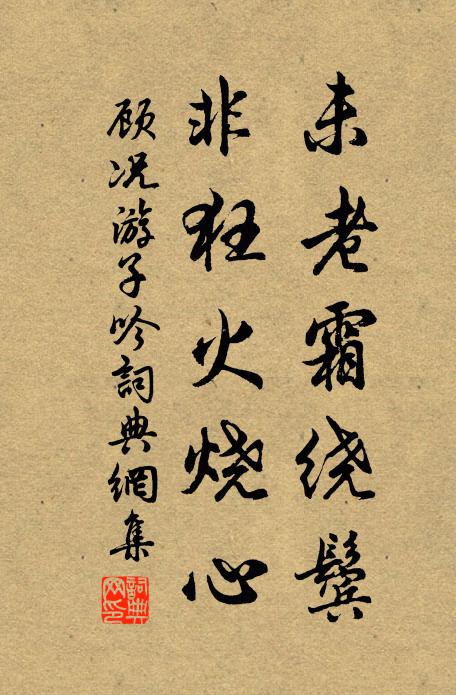 未老霜绕鬓
非狂火烧心
顾况游子吟詞典網集
詞典
网印